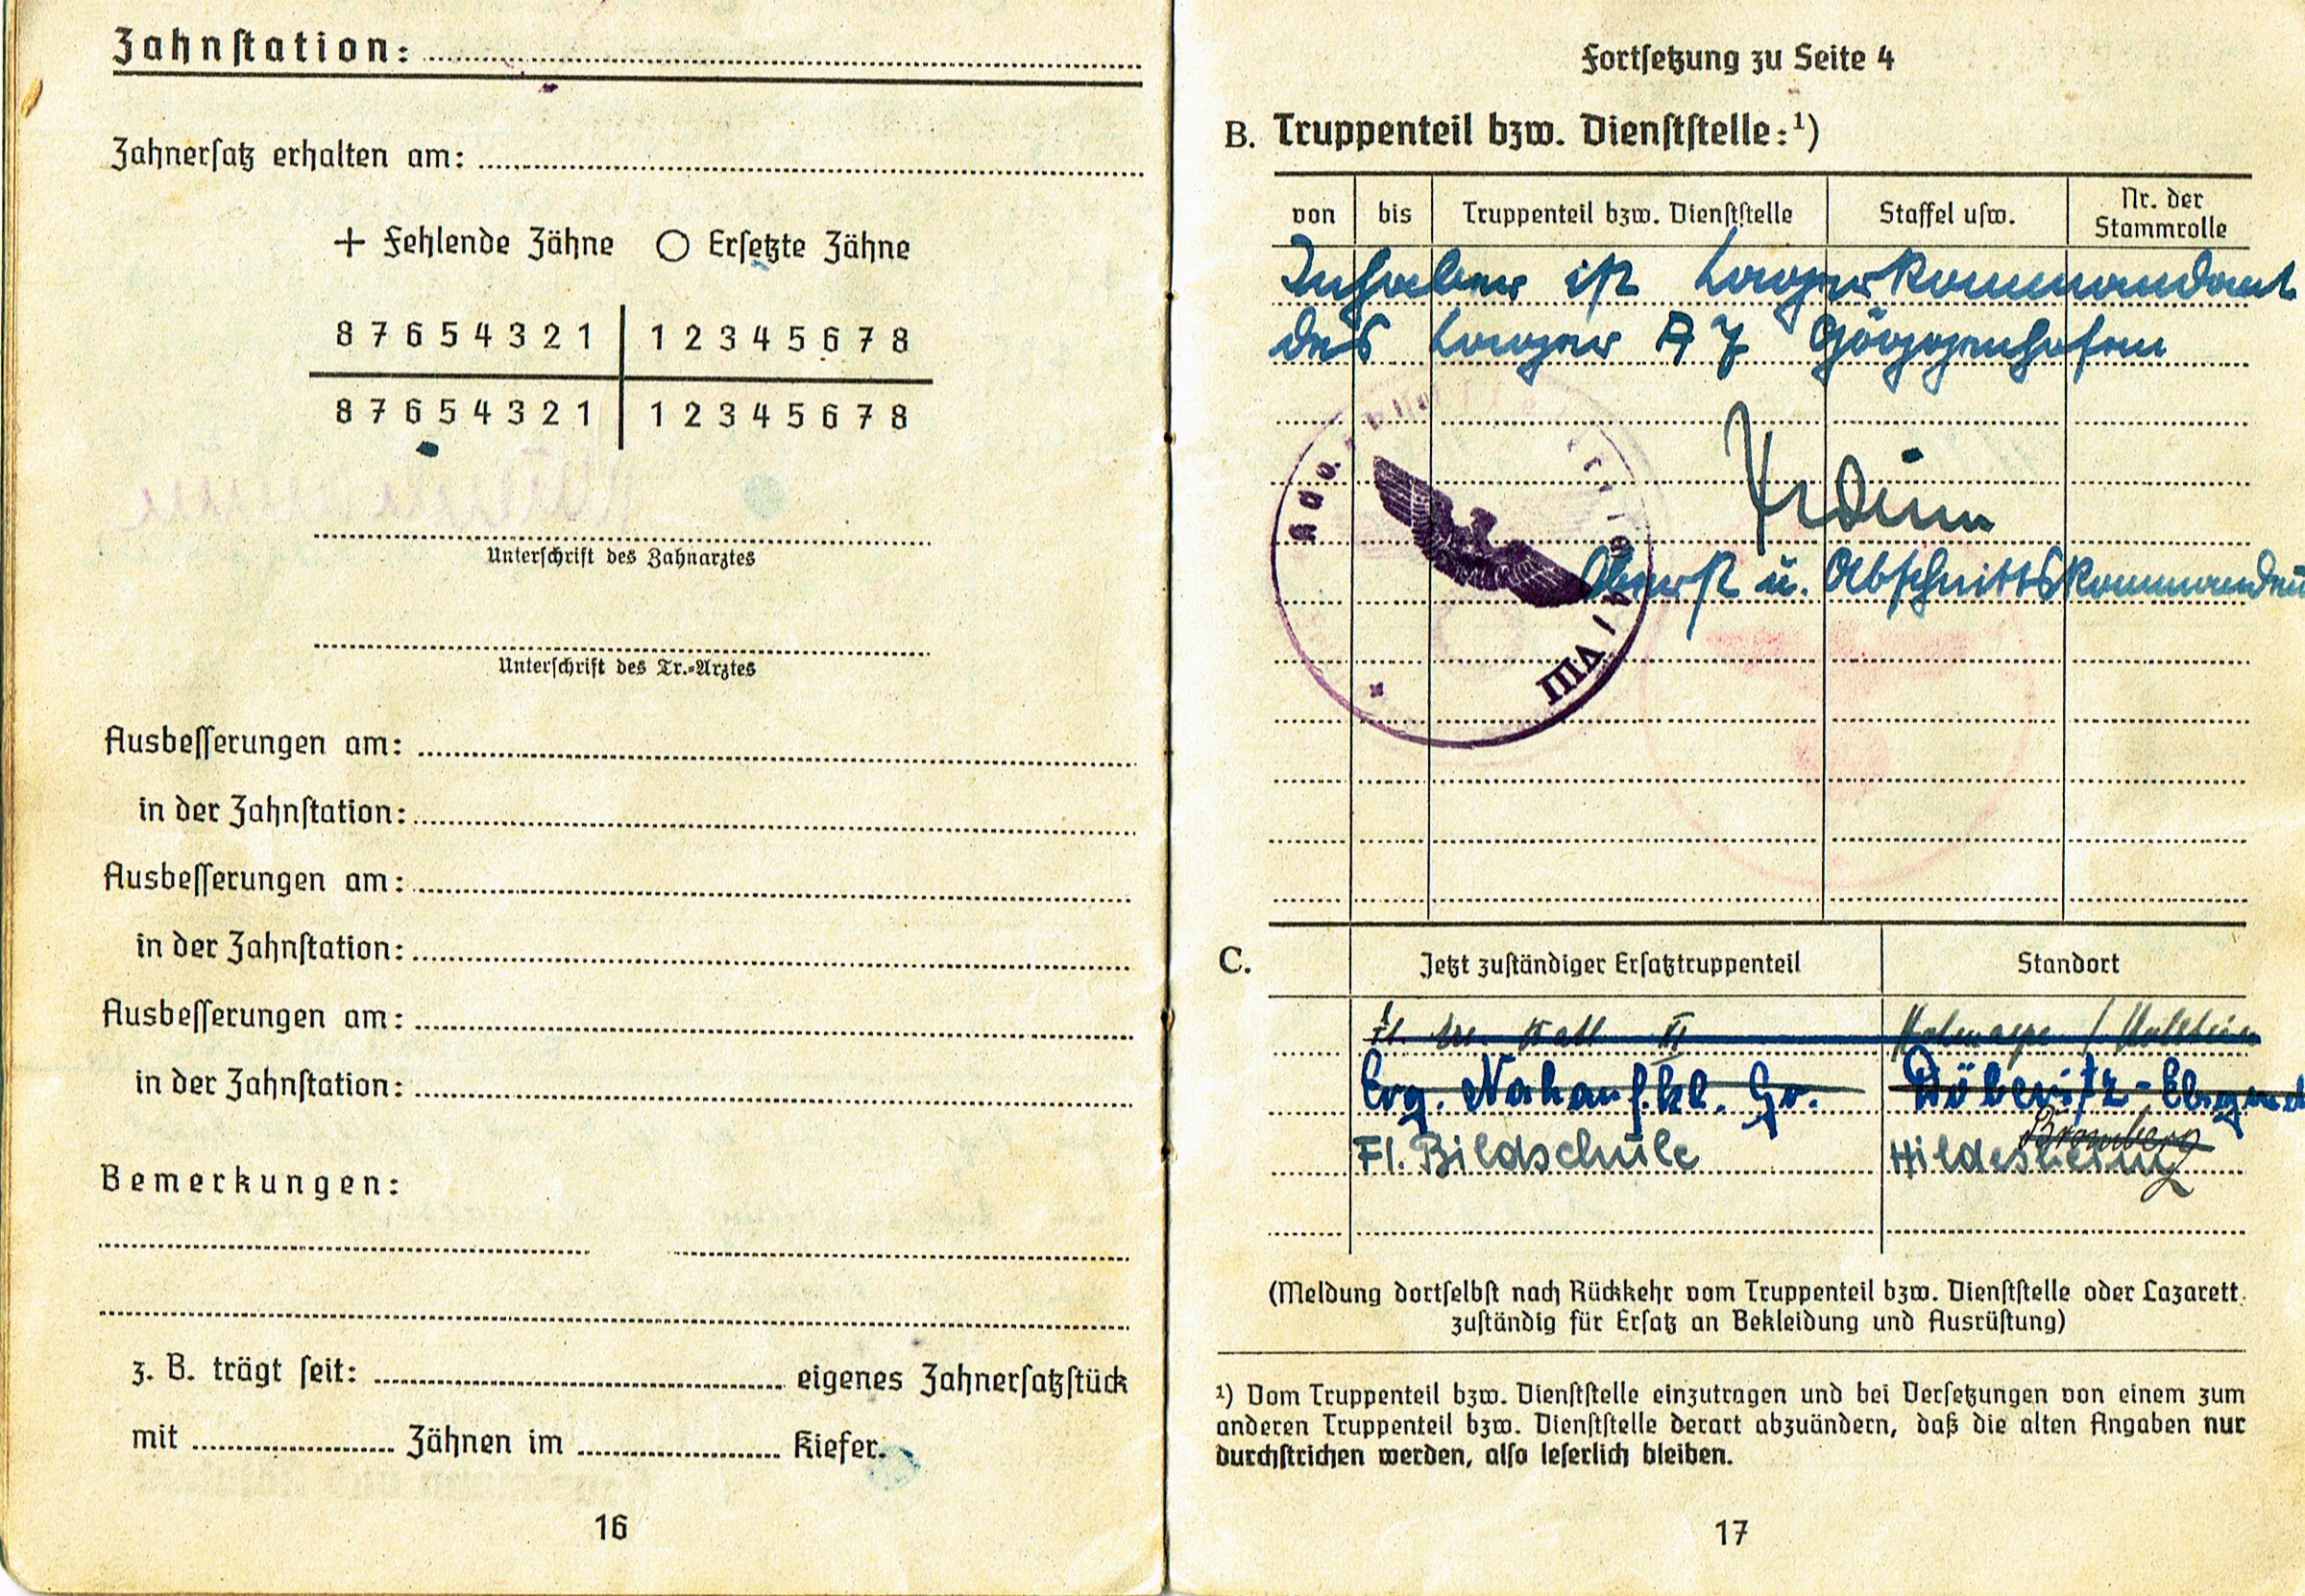 Zahnstation:
Zahnersatz erhalten am:
+ Fehlende Zähne ○ Ersetzte Zähne
8 7 6 5 4 3 2 1 | 1 2 3 4 5 6 7 8
8 7 6 5 4 3 2 1 | 1 2 3 4 5 6 7 8
Unterschrift des Zahnarztes
Unterschrift des Tr.-Arztes
Ausbesserungen am:
in der Zahnstation:
Ausbesserungen am:
in der Zahnstation:
Ausbesserungen am:
in der Zahnstation:
Bemerkungen:
z. B. trägt seit: eigenes Zahnersatzstück
mit Zähnen im Kiefer.
16
Fortsetzung zu Seite 4
B. Truppenteil bzw. Dienststelle:¹)
von bis Truppenteil bzw. Dienststelle Staffel usw. Nr. der Stammrolle
Inhaber ist Lagerkommandant
des Lagers A 7 Göggenhofen
Oberst u. Abschnittskommandeur
VIII
C. Jetzt zuständiger Ersatztruppenteil Standort
Erg. Nahaufkl. Gr.
Bromberg
Fl. Bildschule Hildesheim
(Meldung dortselbst nach Rückkehr vom Truppenteil bzw. Dienststelle oder Lazarett
zuständig für Ersatz an Bekleidung und Ausrüstung)
¹) Vom Truppenteil bzw. Dienststelle einzutragen und bei Versetzungen von einem zum
anderen Truppenteil bzw. Dienststelle derart abzuändern, daß die alten Angaben nur
durchstrichen werden, also leserlich bleiben.
17